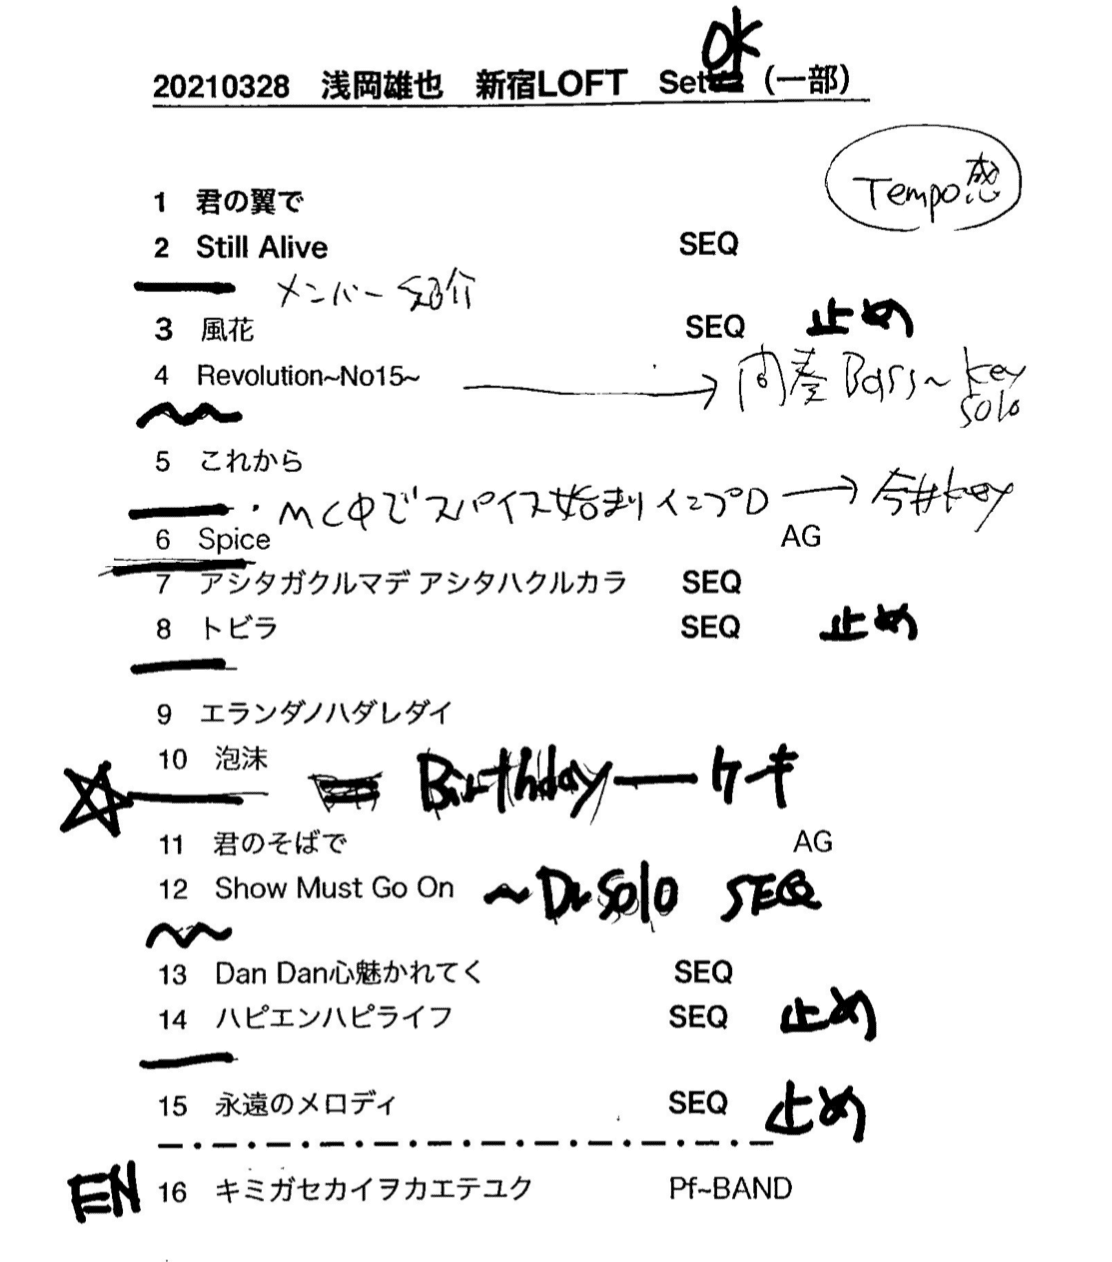 OK
20210328 浅岡雄也 新宿LOFT Set (一部)
Tempo感
1 君の翼で
2 Still Alive SEQ
メンバー紹介
3 風花 SEQ 止め
4 Revolution~No15~ → 間奏 Bass~ key solo
5 これから
・MC中でスパイス始まりインプロ → 今井key
6 Spice AG
7 アシタガクルマデ アシタハクルカラ SEQ
8 トビラ SEQ 止め
9 エランダノハダレダイ
10 泡沫
☆ Birthday — ケーキ
11 君のそばで AG
12 Show Must Go On ~Dr solo SEQ
13 Dan Dan心魅かれてく SEQ
14 ハピエンハピライフ SEQ 止め
15 永遠のメロディ SEQ 止め
EN 16 キミガセカイヲカエテユク Pf~BAND